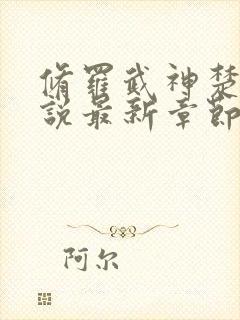 脩羅武神楚
說最新章節
阿尔